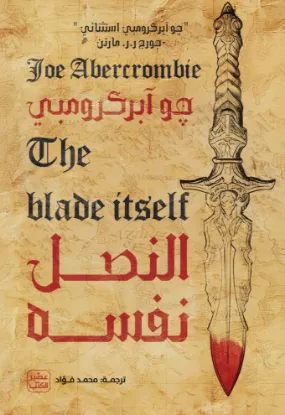 "جو آبركرومبي استثنائي"
-جورج ر.ر. مارتن
Joe Abercrombie
چو آبركرومبي
The
blade itself
النصل
نفسه
ترجمة: محمد فؤاد
عصير
الكتب